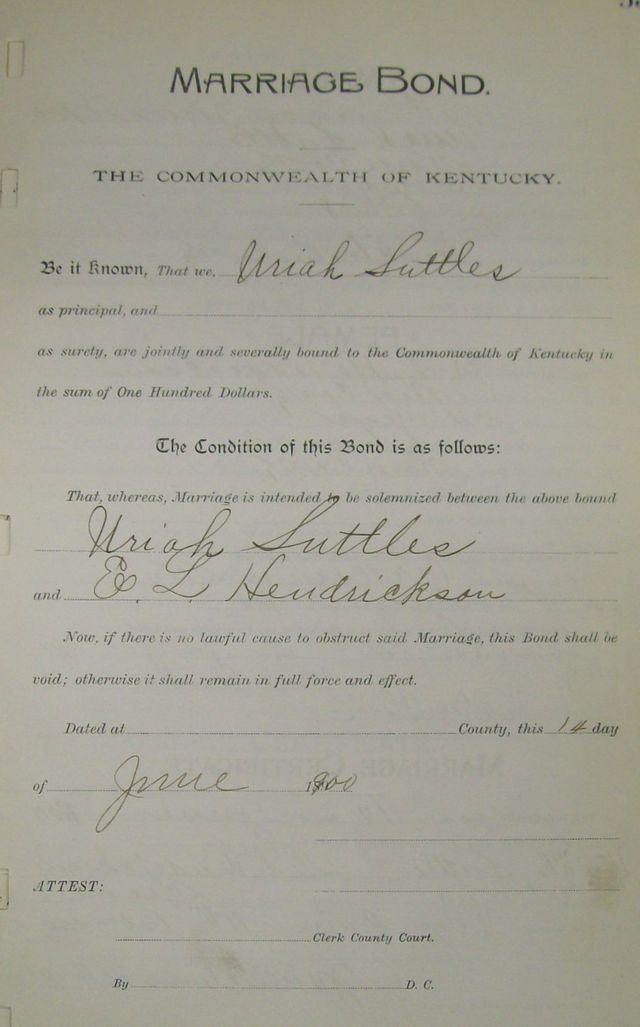 MARRIAGE BOND.
THE COMMONWEALTH OF KENTUCKY.
Be it Known, That we, Uriah Suttles
as principal, and
as surety, are jointly and severally bound to the Commonwealth of Kentucky in
the sum of One Hundred Dollars.
The Condition of this Bond is as follows:
That, whereas, Marriage is intended to be solemnized between the above bound
Uriah Suttles
and E. L. Hendrickson
Now, if there is no lawful cause to obstruct said Marriage, this Bond shall be
void; otherwise it shall remain in full force and effect.
Dated at County, this 14 day
of June 1900
ATTEST:
Clerk County Court.
By D. C.